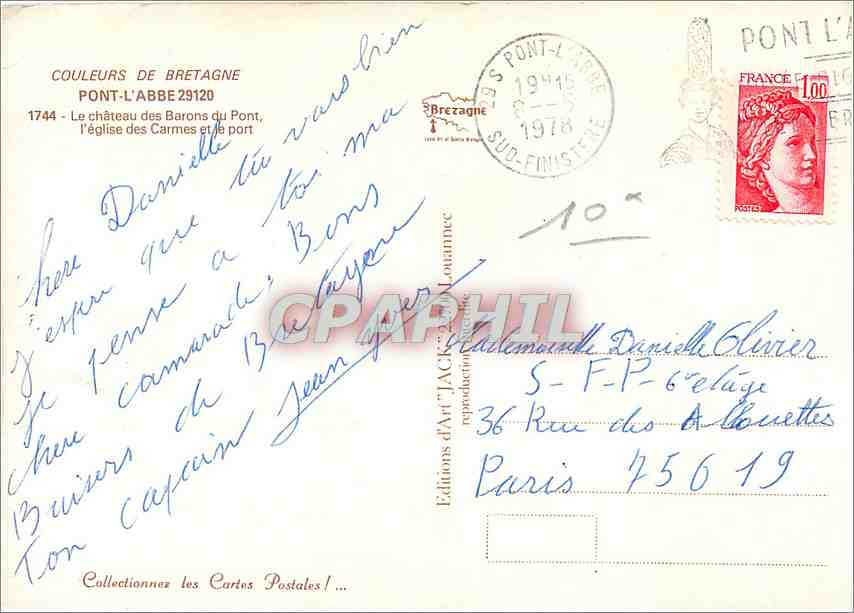 COULEURS DE BRETAGNE
PONT-L'ABBE 29120
1744 - Le château des Barons du Pont,
l'église des Carmes et le port
Bretagne
29 S PONT-L'ABBE
19H15
1978
SUD-FINISTERE
PONT L'A
FRANCE
1,00
POSTES
10
hère Danielle
j'espère que tu vas bien
je pense a toi ma
chere camarade, Bons
Baisers de Bretagne
Ton copain Jean Yves
CPAPHIL
Editions d'Art "JACK" Louannec
reproduction interdite
Mademoiselle Danielle Olivier
S - F - P - 6e etage
36 Rue des Allouettes
Paris 75019
Collectionnez les Cartes Postales ! ...